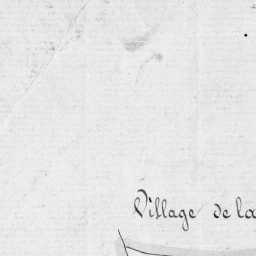 Village de la